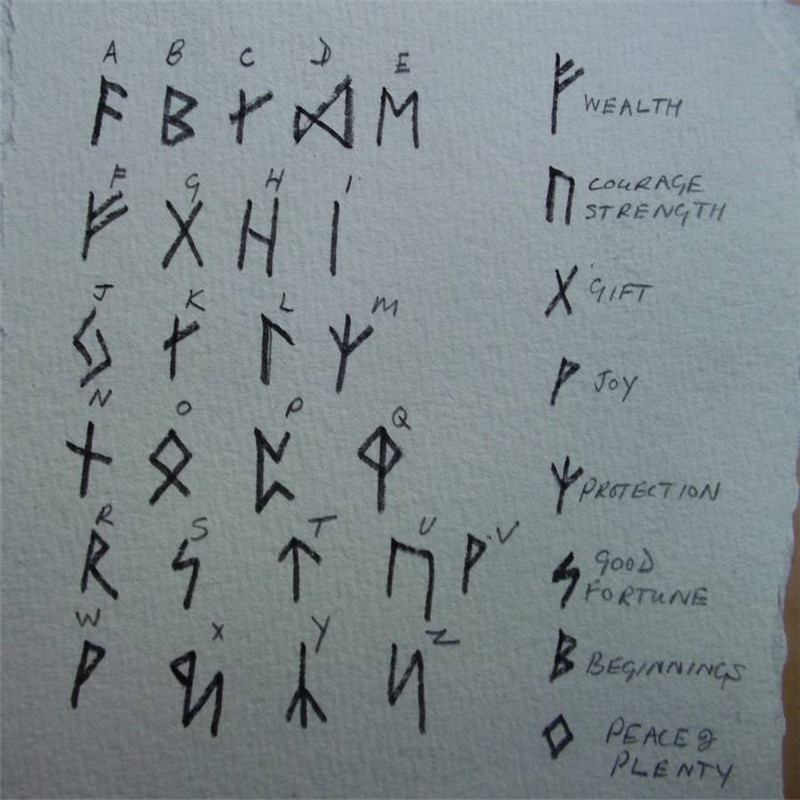 A B C D E
ᚨ ᛒ ᚲ ᛞ ᛖ
F G H I
ᚠ ᚷ ᚺ ᛁ
J K L M
ᛃ ᚴ ᛚ ᛉ
N O P Q
ᚾ ᛟ ᛈ ᛄ
R S T U V
ᚱ ᛋ ᛏ ᚢ ᚹ
W X Y Z
ᚹ ᛪ ᛦ ᛋ
ᚠ WEALTH
ᚢ COURAGE
STRENGTH
ᚷ GIFT
ᚹ JOY
ᛉ PROTECTION
ᛋ GOOD
FORTUNE
ᛒ BEGINNINGS
ᛜ PEACE &
PLENTY